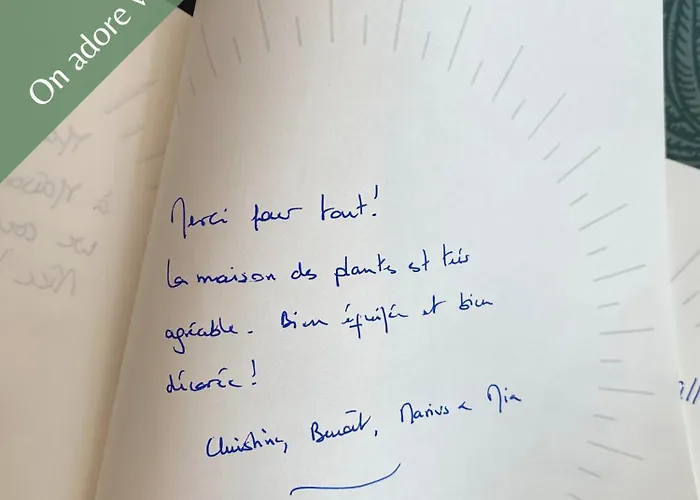 On adore
Merci pour tout!
La maison des plantes est très
agréable. Bien équipée et bien
décorée!
Christine, Benoît, Marius & Mia